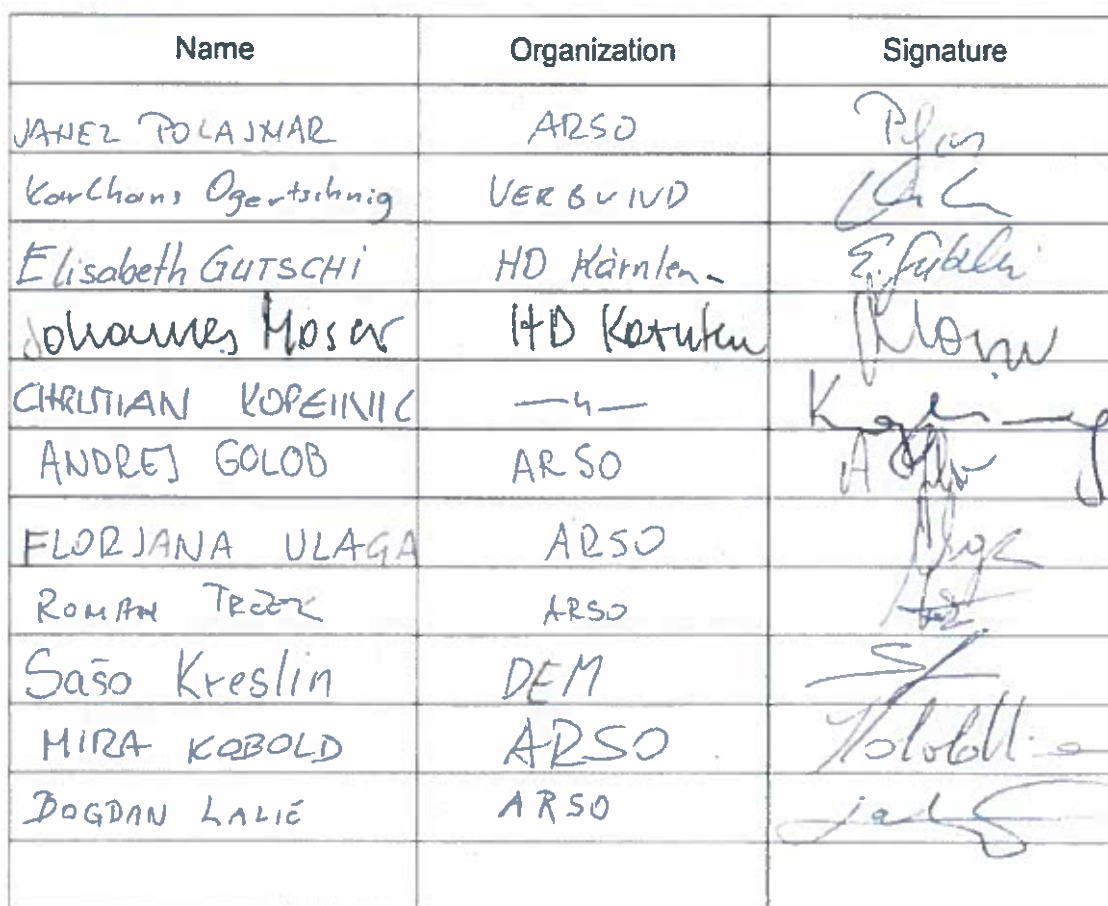 Name Organization Signature
JANEZ POLAJNAR ARSO
Karlhans Ogertschnig VERBUND
Elisabeth GUTSCHI HD Kärnten
Johannes Moser HD Kärnten Moser
CHRISTIAN KOPEINIG —〃—
ANDREJ GOLOB ARSO
FLORJANA ULAGA ARSO
ROMAN TRČEK ARSO
Sašo Kreslin DEM
MIRA KOBOLD ARSO
BOGDAN LALIĆ ARSO